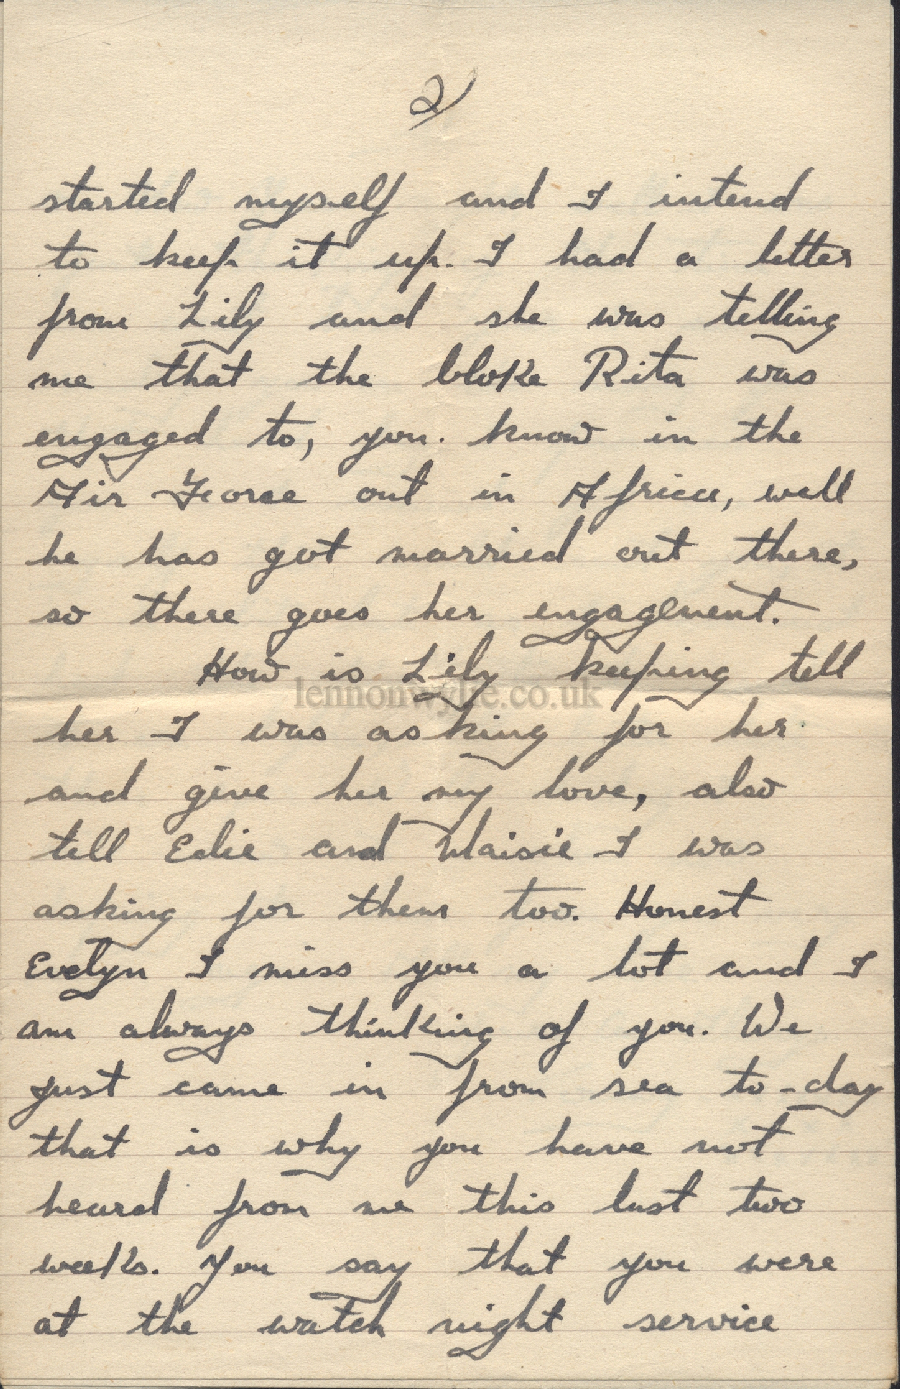 2/
started myself and I intend
to keep it up. I had a letter
from Lily and she was telling
me that the bloke Rita was
engaged to, you. know in the
Air Force out in Africa, well
he has got married out there,
so there goes her engagement.
How is Lily keeping tell
lennonwylie.co.uk
her I was asking for her
and give her my love, also
tell Edie and Maisie I was
asking for them too. Honest
Evelyn I miss you a lot and I
am always thinking of you. We
just came in from sea to-day
that is why you have not
heard from me this last two
weeks. You say that you were
at the watch night service